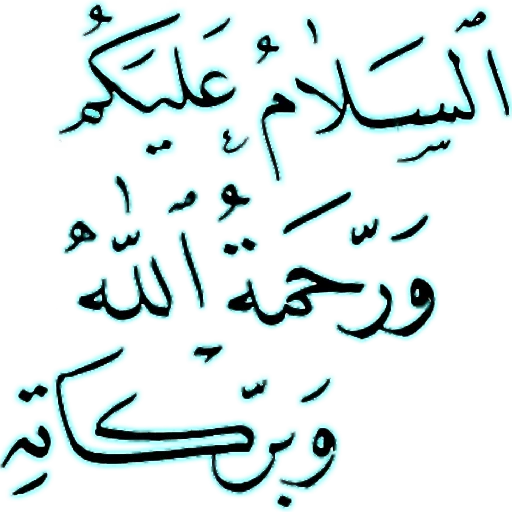 ٱلسَّلَامُ عَلَيْكُمُ
وَرَحْمَةُ ٱللَّٰهُ
وَبَرَكَاتِهِ